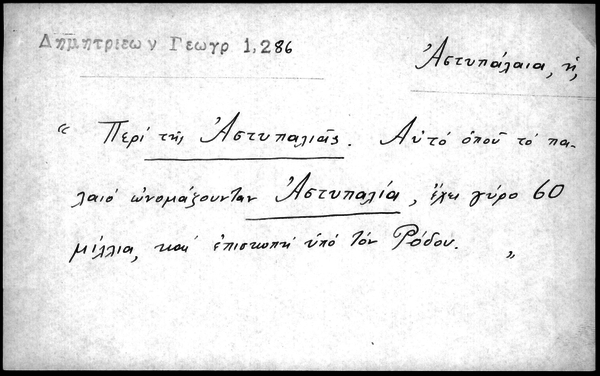 Δημητριεων Γεωγρ 1,286
Ἀστυπάλαια, ἡ,
" Περί τῆς Ἀστυπαλιᾶς. Αὐτό ὁποῦ τό πα-
λαιό ὠνομάζουνταν Ἀστυπαλία, ἔχει γύρο 60
μίλλια, καί ἐπισκοπή ὑπό τόν Ρόδου. "